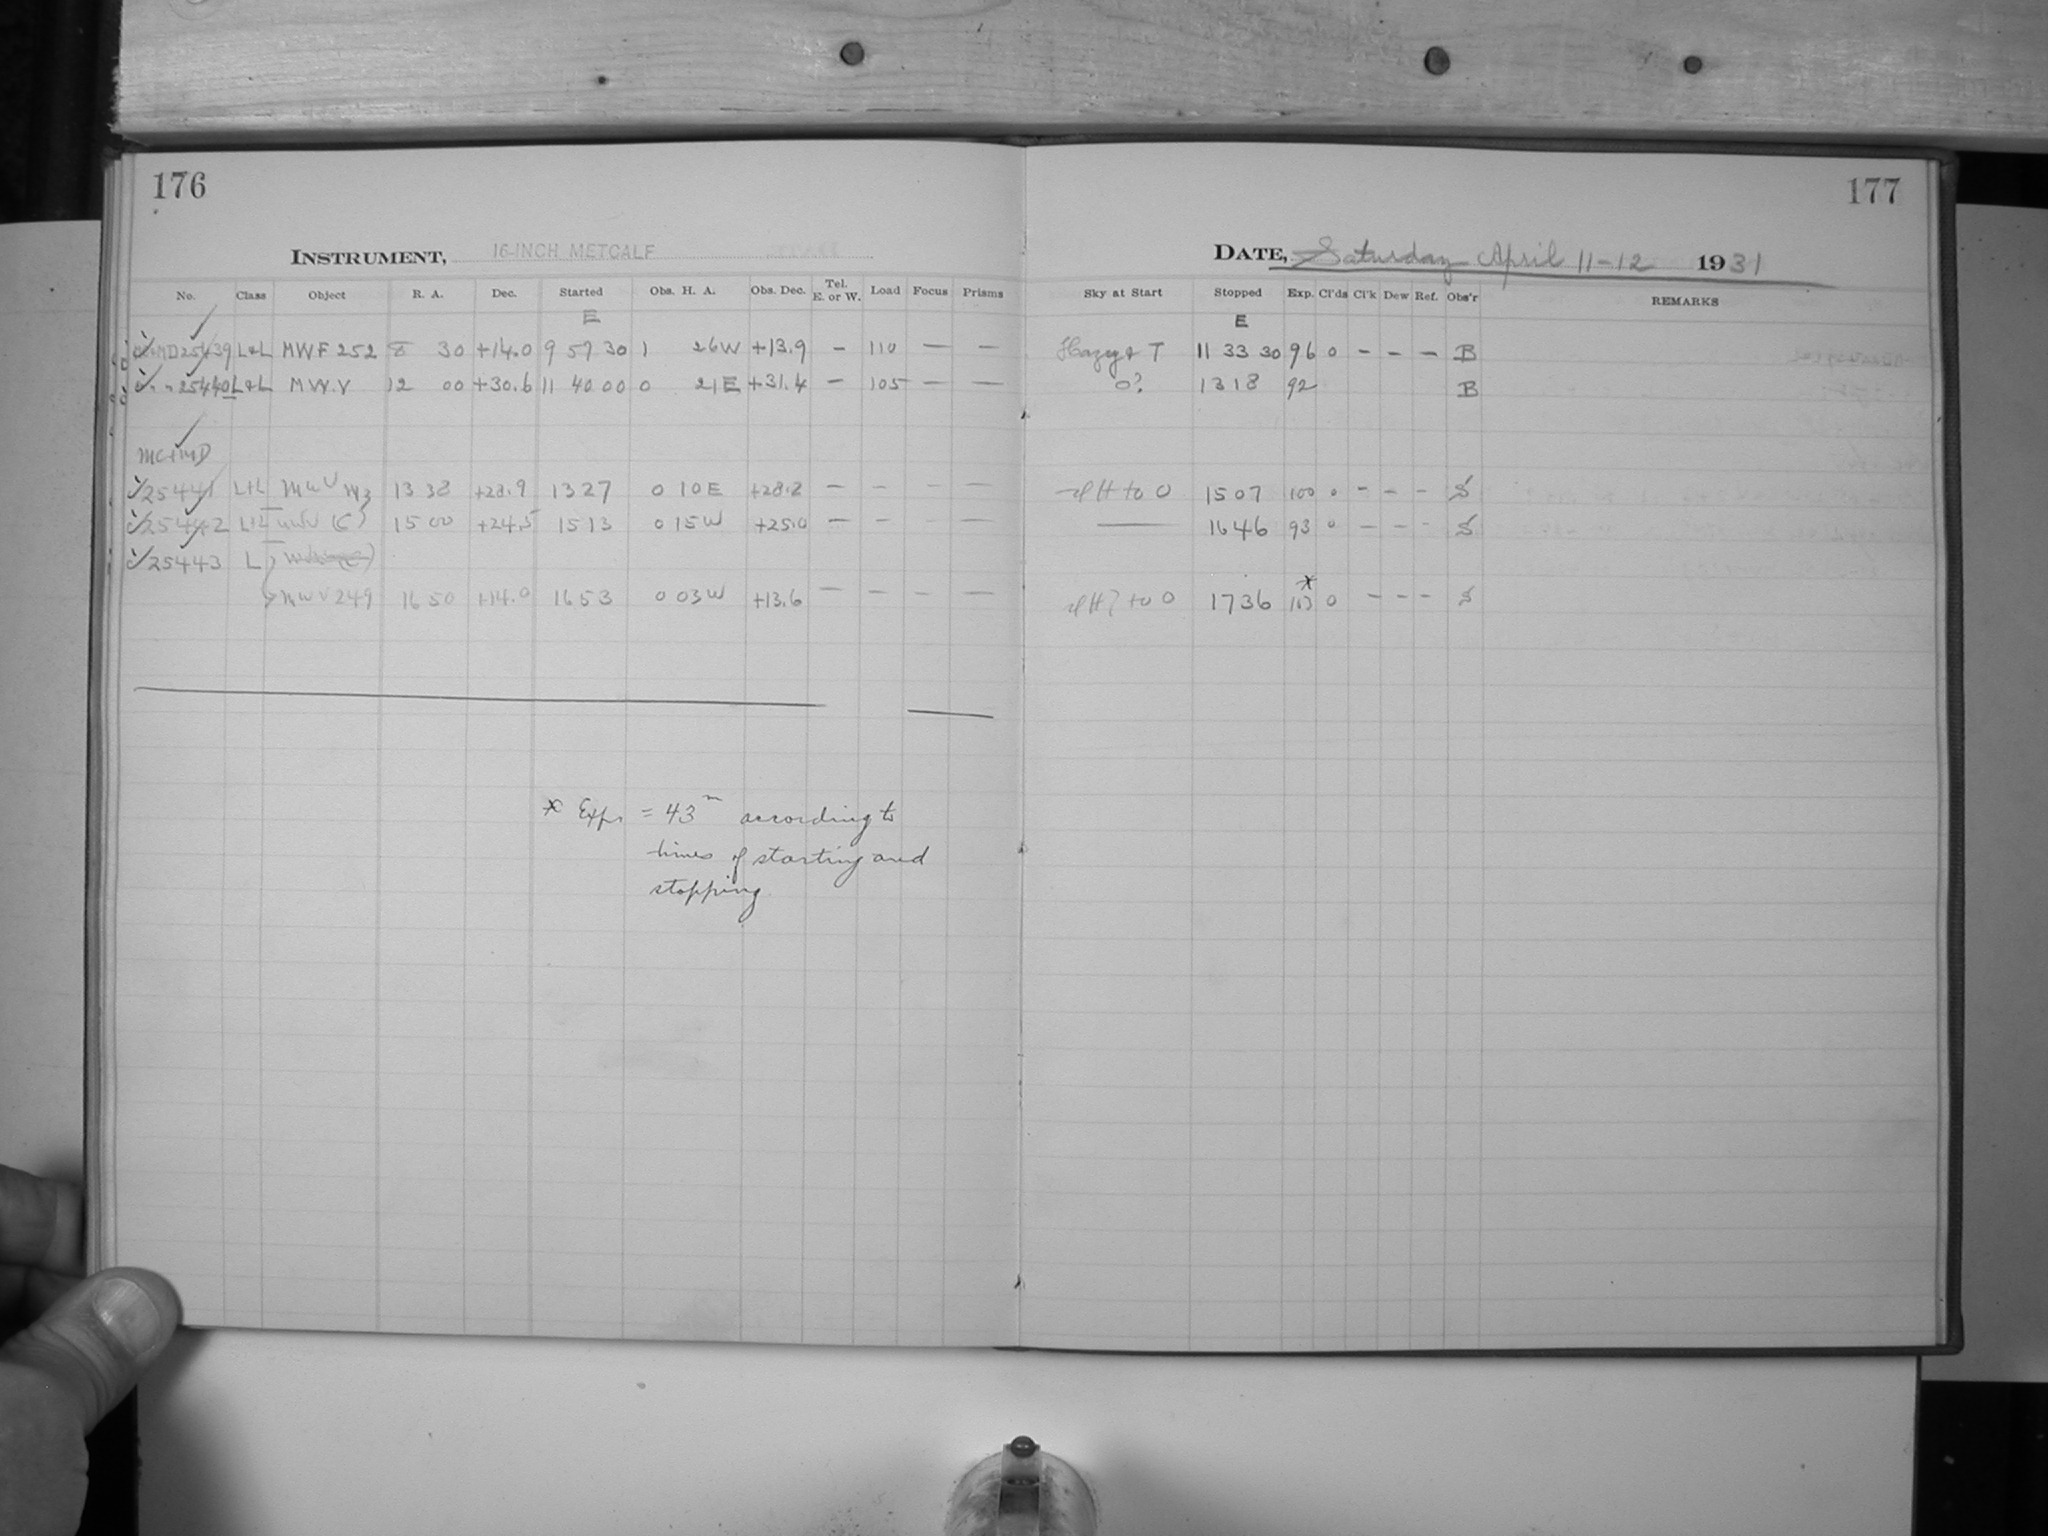 176
INSTRUMENT, 16-INCH METCALF
No. Class Object R. A. Dec. Started Obs. H. A. Obs. Dec. Tel. E. or W. Load Focus Prisms
E
MD 25439 L+L MWF 252 8 30 +14.0 9 57 30 1 26W +13.9 - 110 - -
" 25440 L+L MW.V 12 00 +30.6 11 40 00 0 21E +31.4 - 105 - -
MC+MD
25441 L+L 13 38 +28.9 13 27 0 10E +28.2 - - - -
25442 L+L (C) 15 00 +24.5 15 13 0 15W +25.0 - - - -
25443 L
MWV 249 16 50 +14.0 16 53 0 03W +13.6 - - - -
* Exp. = 43m according to
times of starting and
stopping.
177
DATE, Saturday April 11-12 1931
Sky at Start Stopped Exp. Cl'ds Cl'k Dew Ref. Obs'r REMARKS
E
Hazy + T 11 33 30 96 0 - - - B
0? 13 18 92 B
to 0 15 07 100 0 - - - S
— 16 46 93 0 - - - S
*
to 0 17 36 103 0 - - - S